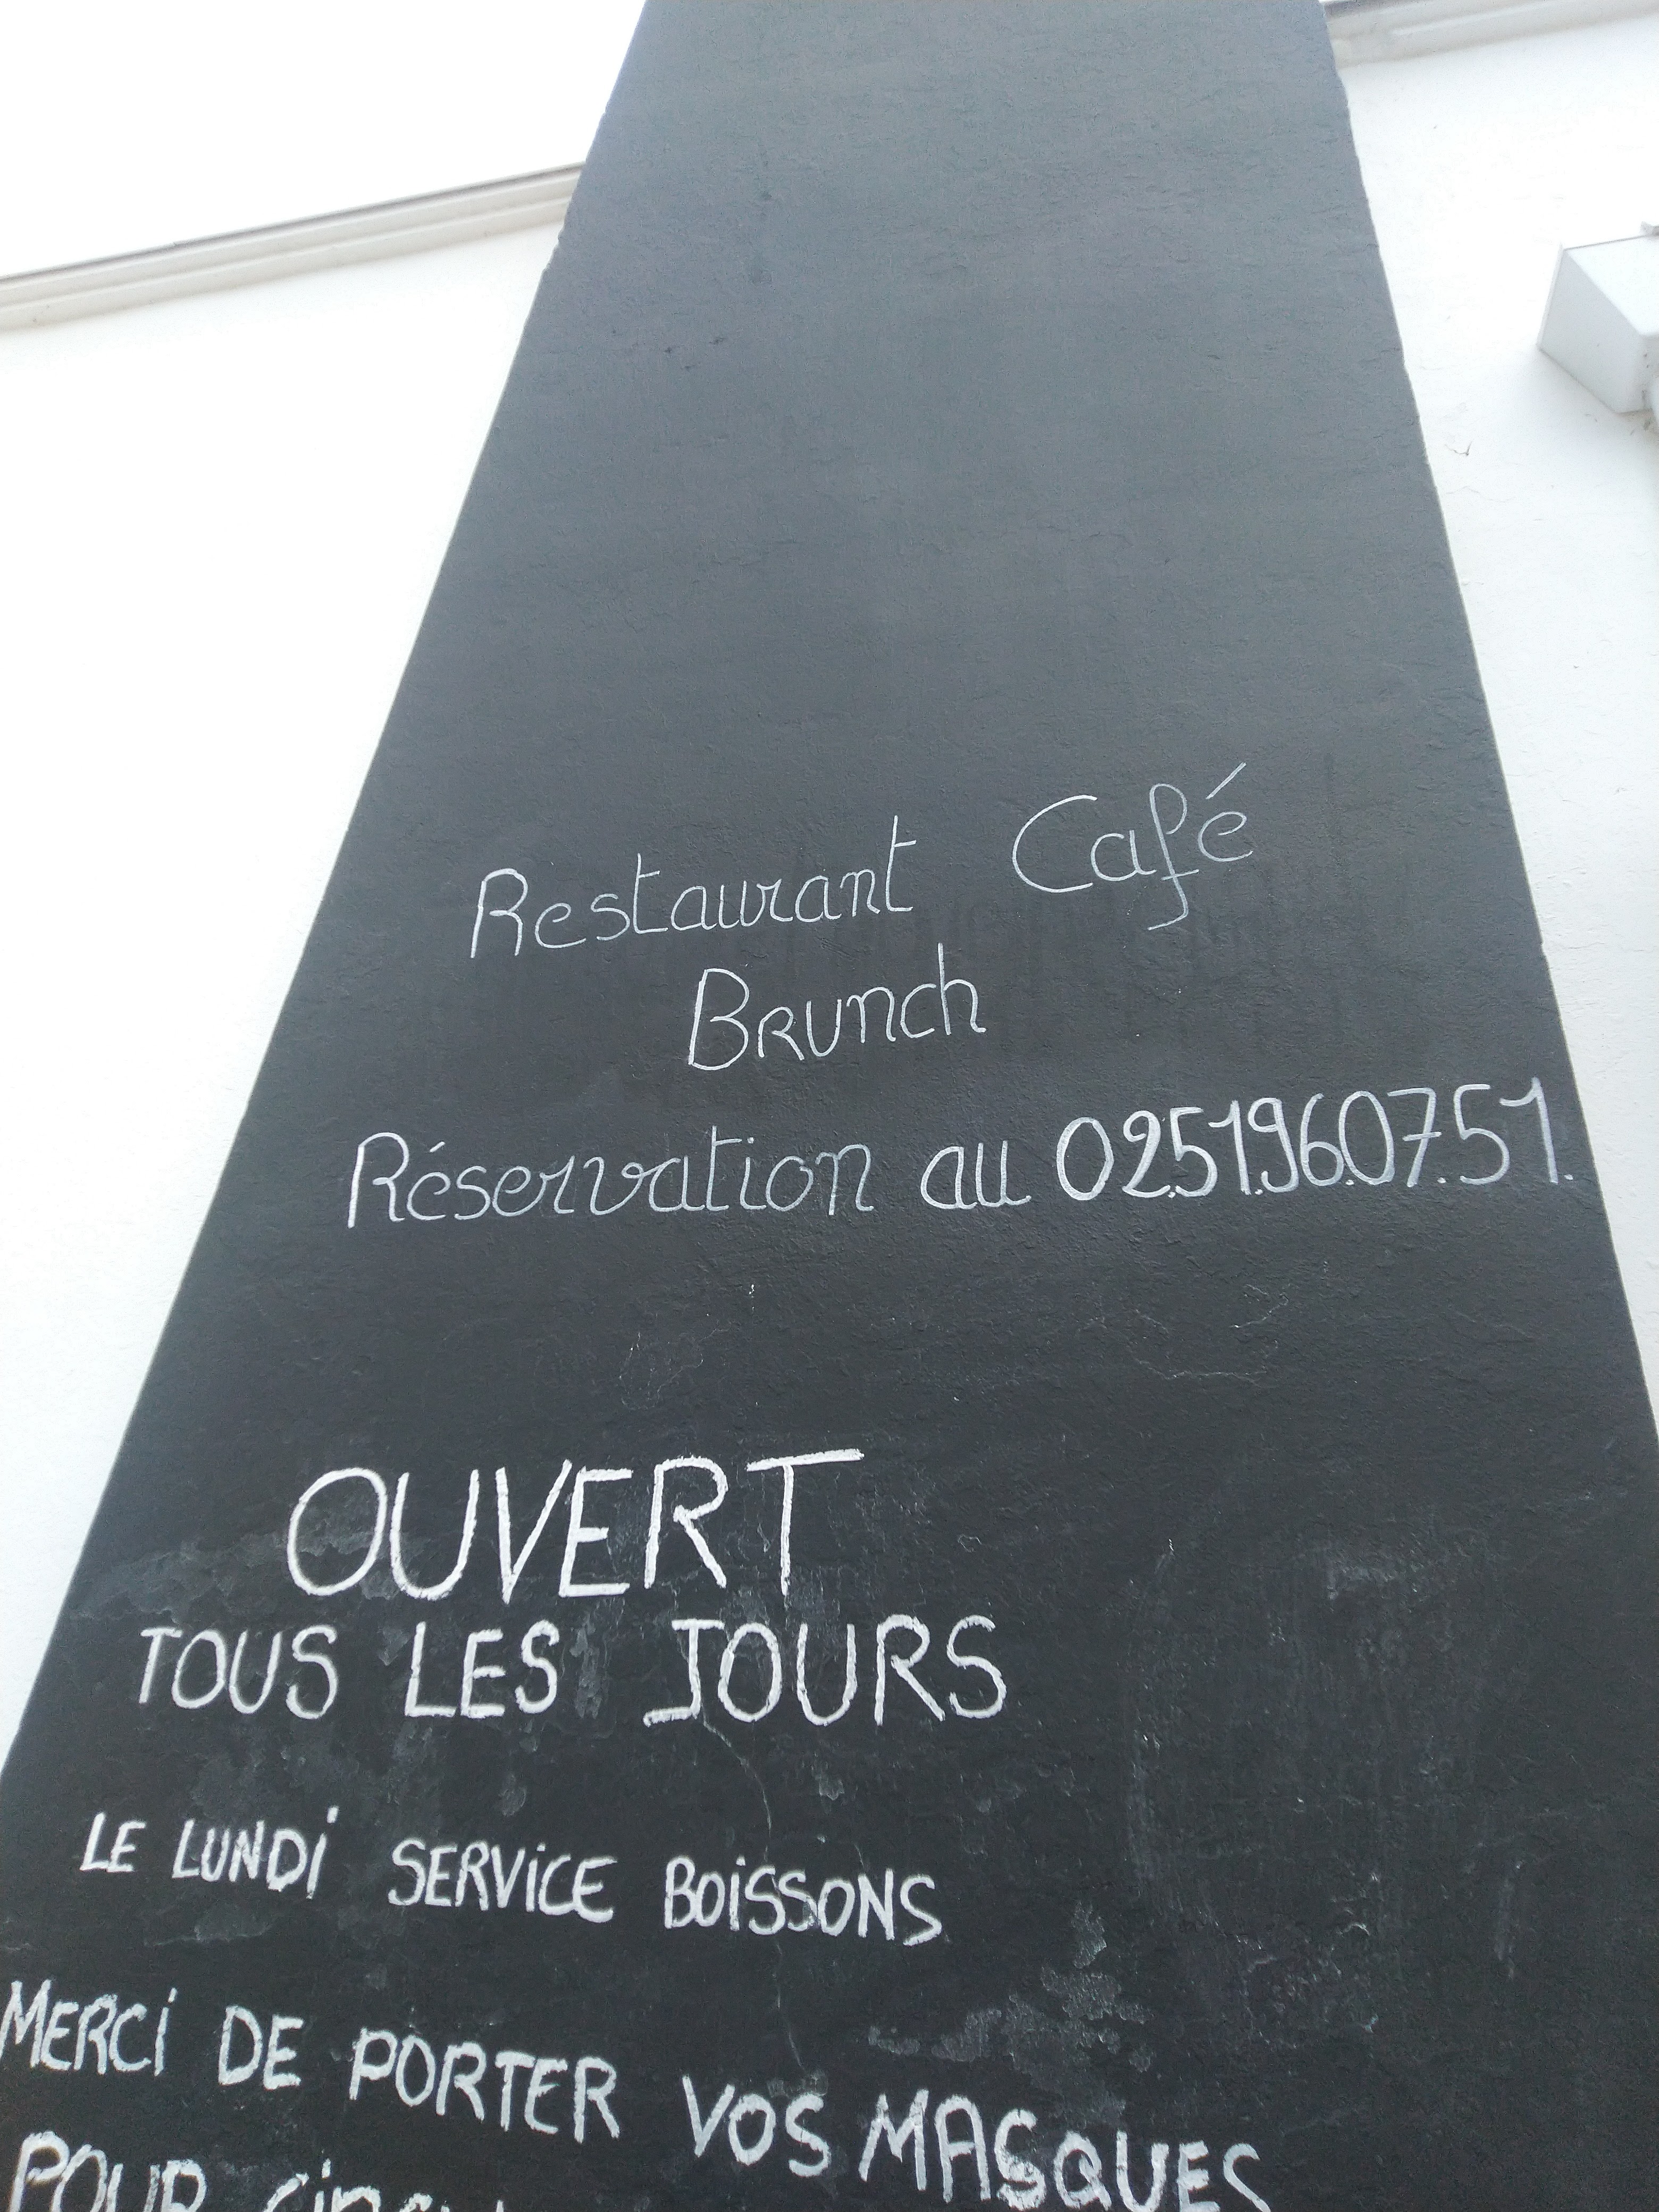 Restaurant Café
Brunch
Réservation au 02.51.96.07.51.
OUVERT
TOUS LES JOURS
LE LUNDi SERViCE BOiSSONS
MERCi DE PORTER VOS MASQUES
POUR